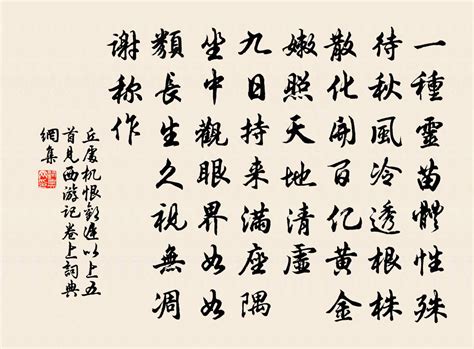 一種靈苗體性殊
待秋風冷透根株
散化開百亿黃金
嫩照天地清虛
九日持来滿座隅
坐中觀眼界如如
類長生久視無凋
谢称作
丘處机恨歡遲以上五
首見西游记卷上詞典
網集